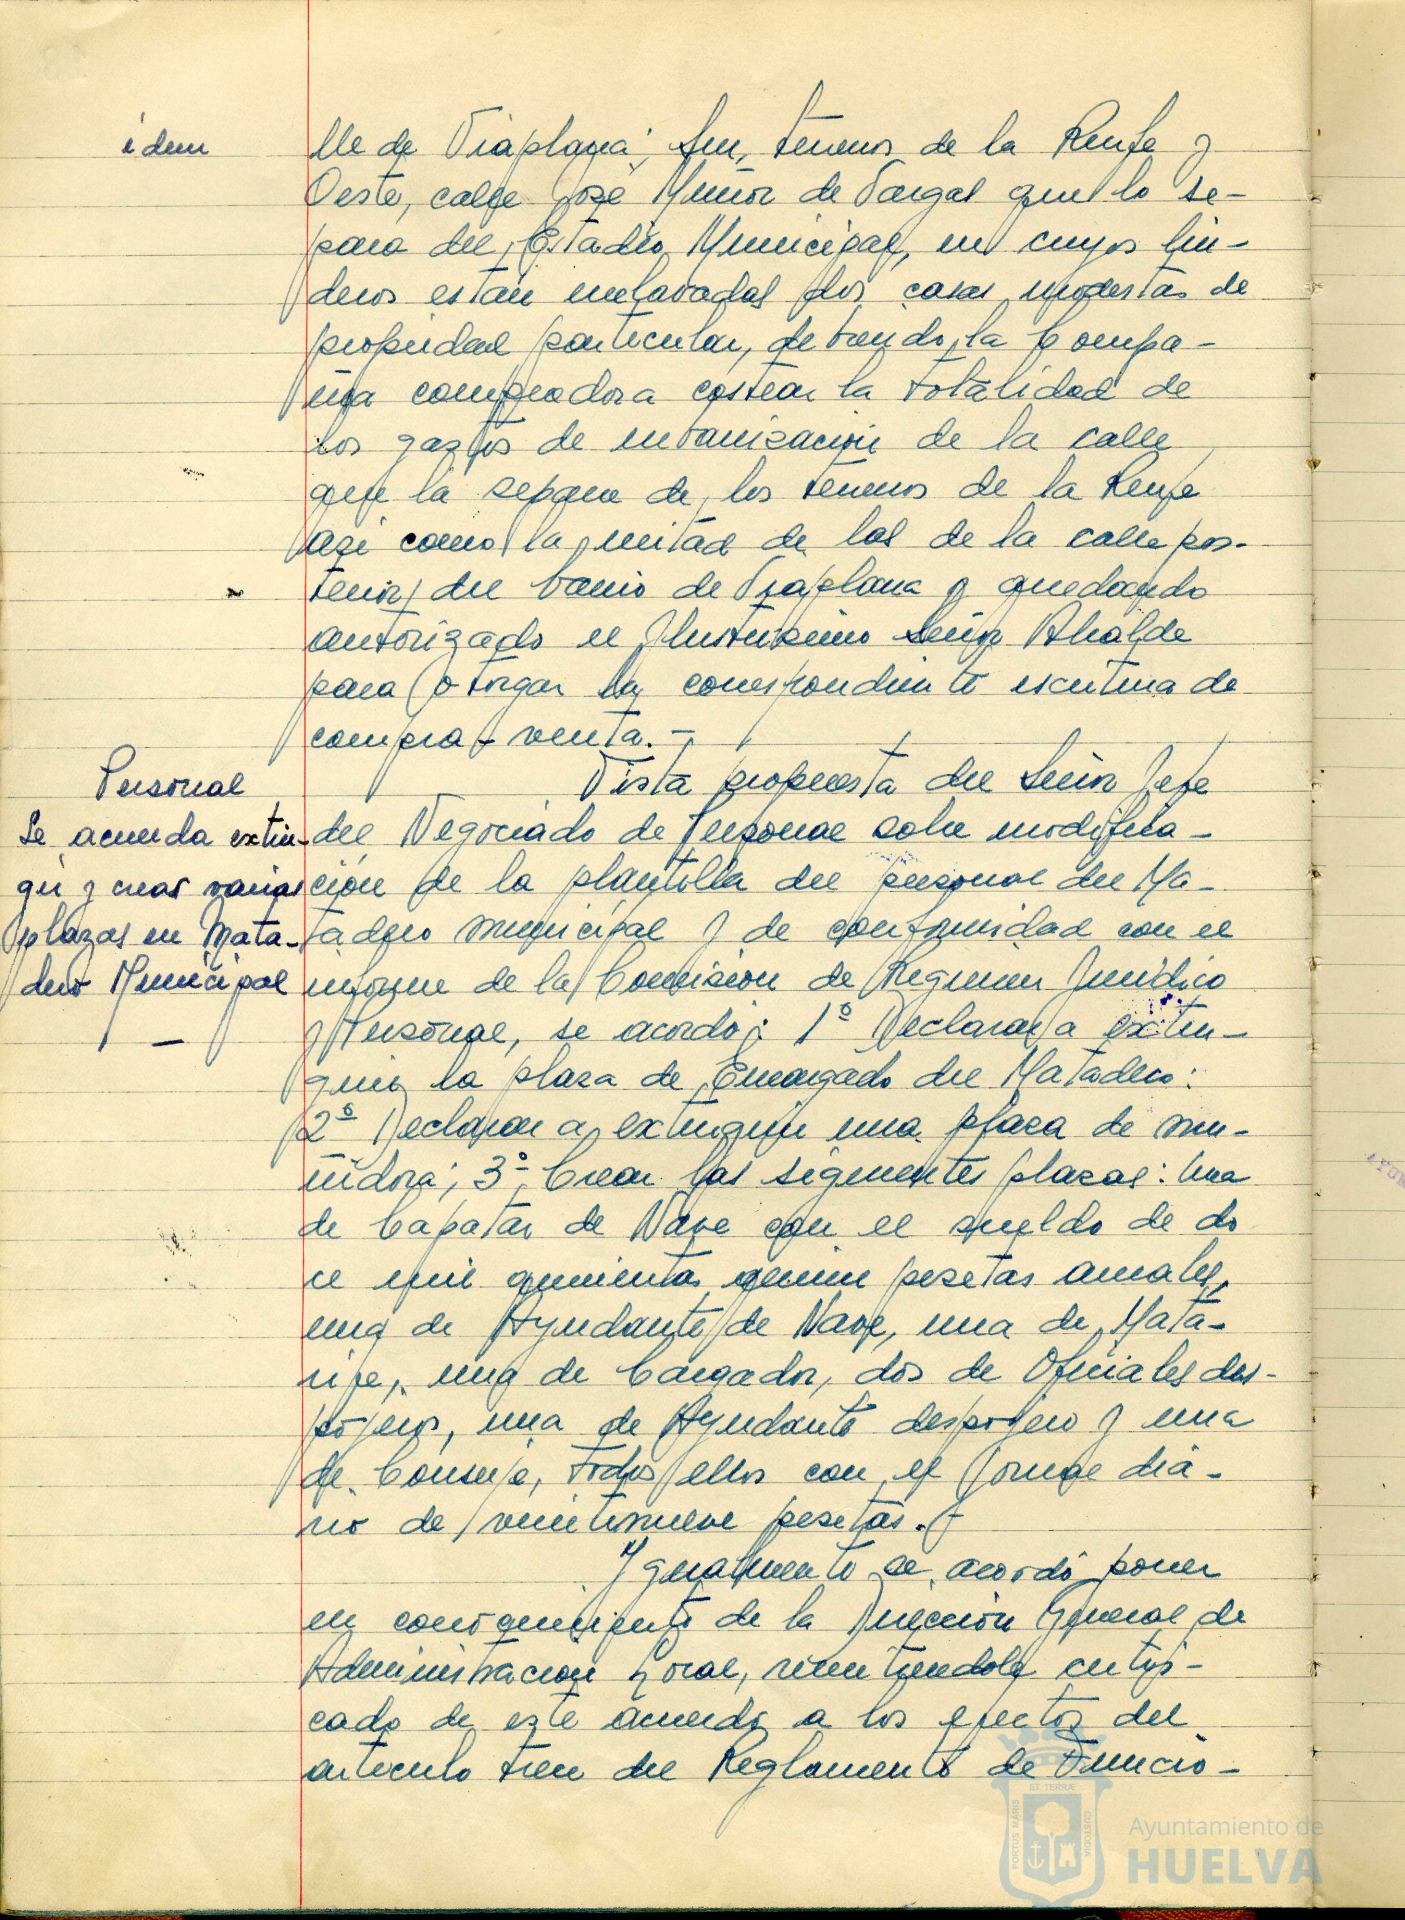 idem
lle de Viaplana; Sur, terrenos de la Renfe y
Oeste, calle José Muñoz de Vargas que lo se-
para del Estadio Municipal, en cuyos lin-
deros están enclavadas dos casas modestas de
propiedad particular, debiendo la Compa-
ñia compradora costear la totalidad de
los gastos de urbanización de la calle
que la separa de los terrenos de la Renfe
así como la mitad de los de la calle pos-
terior del barrio de Viaplana y quedando
autorizado el Ilustrisimo Señor Alcalde
para otorgar la correspondiente escritura de
compra-venta.-
Personal
Se acuerda extin-
guir y crear varias
plazas en Mata-
dero Municipal
Vista propuesta del Señor Jefe
del Negociado de Personal sobre modifica-
ción de la plantilla del personal del Ma-
tadero municipal y de conformidad con el
informe de la Comisión de Regimen Juridico
y Personal, se acordó: 1º Declarar a extin-
guir la plaza de Encargado del Matadero:
2º Declarar a extinguir una plaza de mu-
ñidora; 3º- Crear las siguientes plazas: Una
de Capataz de Nave con el sueldo de do
ce mil quinientas pesetas anuales,
una de Ayudante de Nave, una de Mata-
rife, una de Cargador, dos de Oficiales des-
pojeros, una de Ayudante despojero y una
de Conserje, todos ellos con el jornal dia-
rio de veintinueve pesetas.-
Igualmente se acordó poner
en conocimiento de la Dirección General de
Administración Local, remitiendole certifi-
cado de este acuerdo a los efectos del
articulo trece del Reglamento de Funcio-
PORTUS MARIS
ET TERRÆ
CUSTODIA
Ayuntamiento de
HUELVA